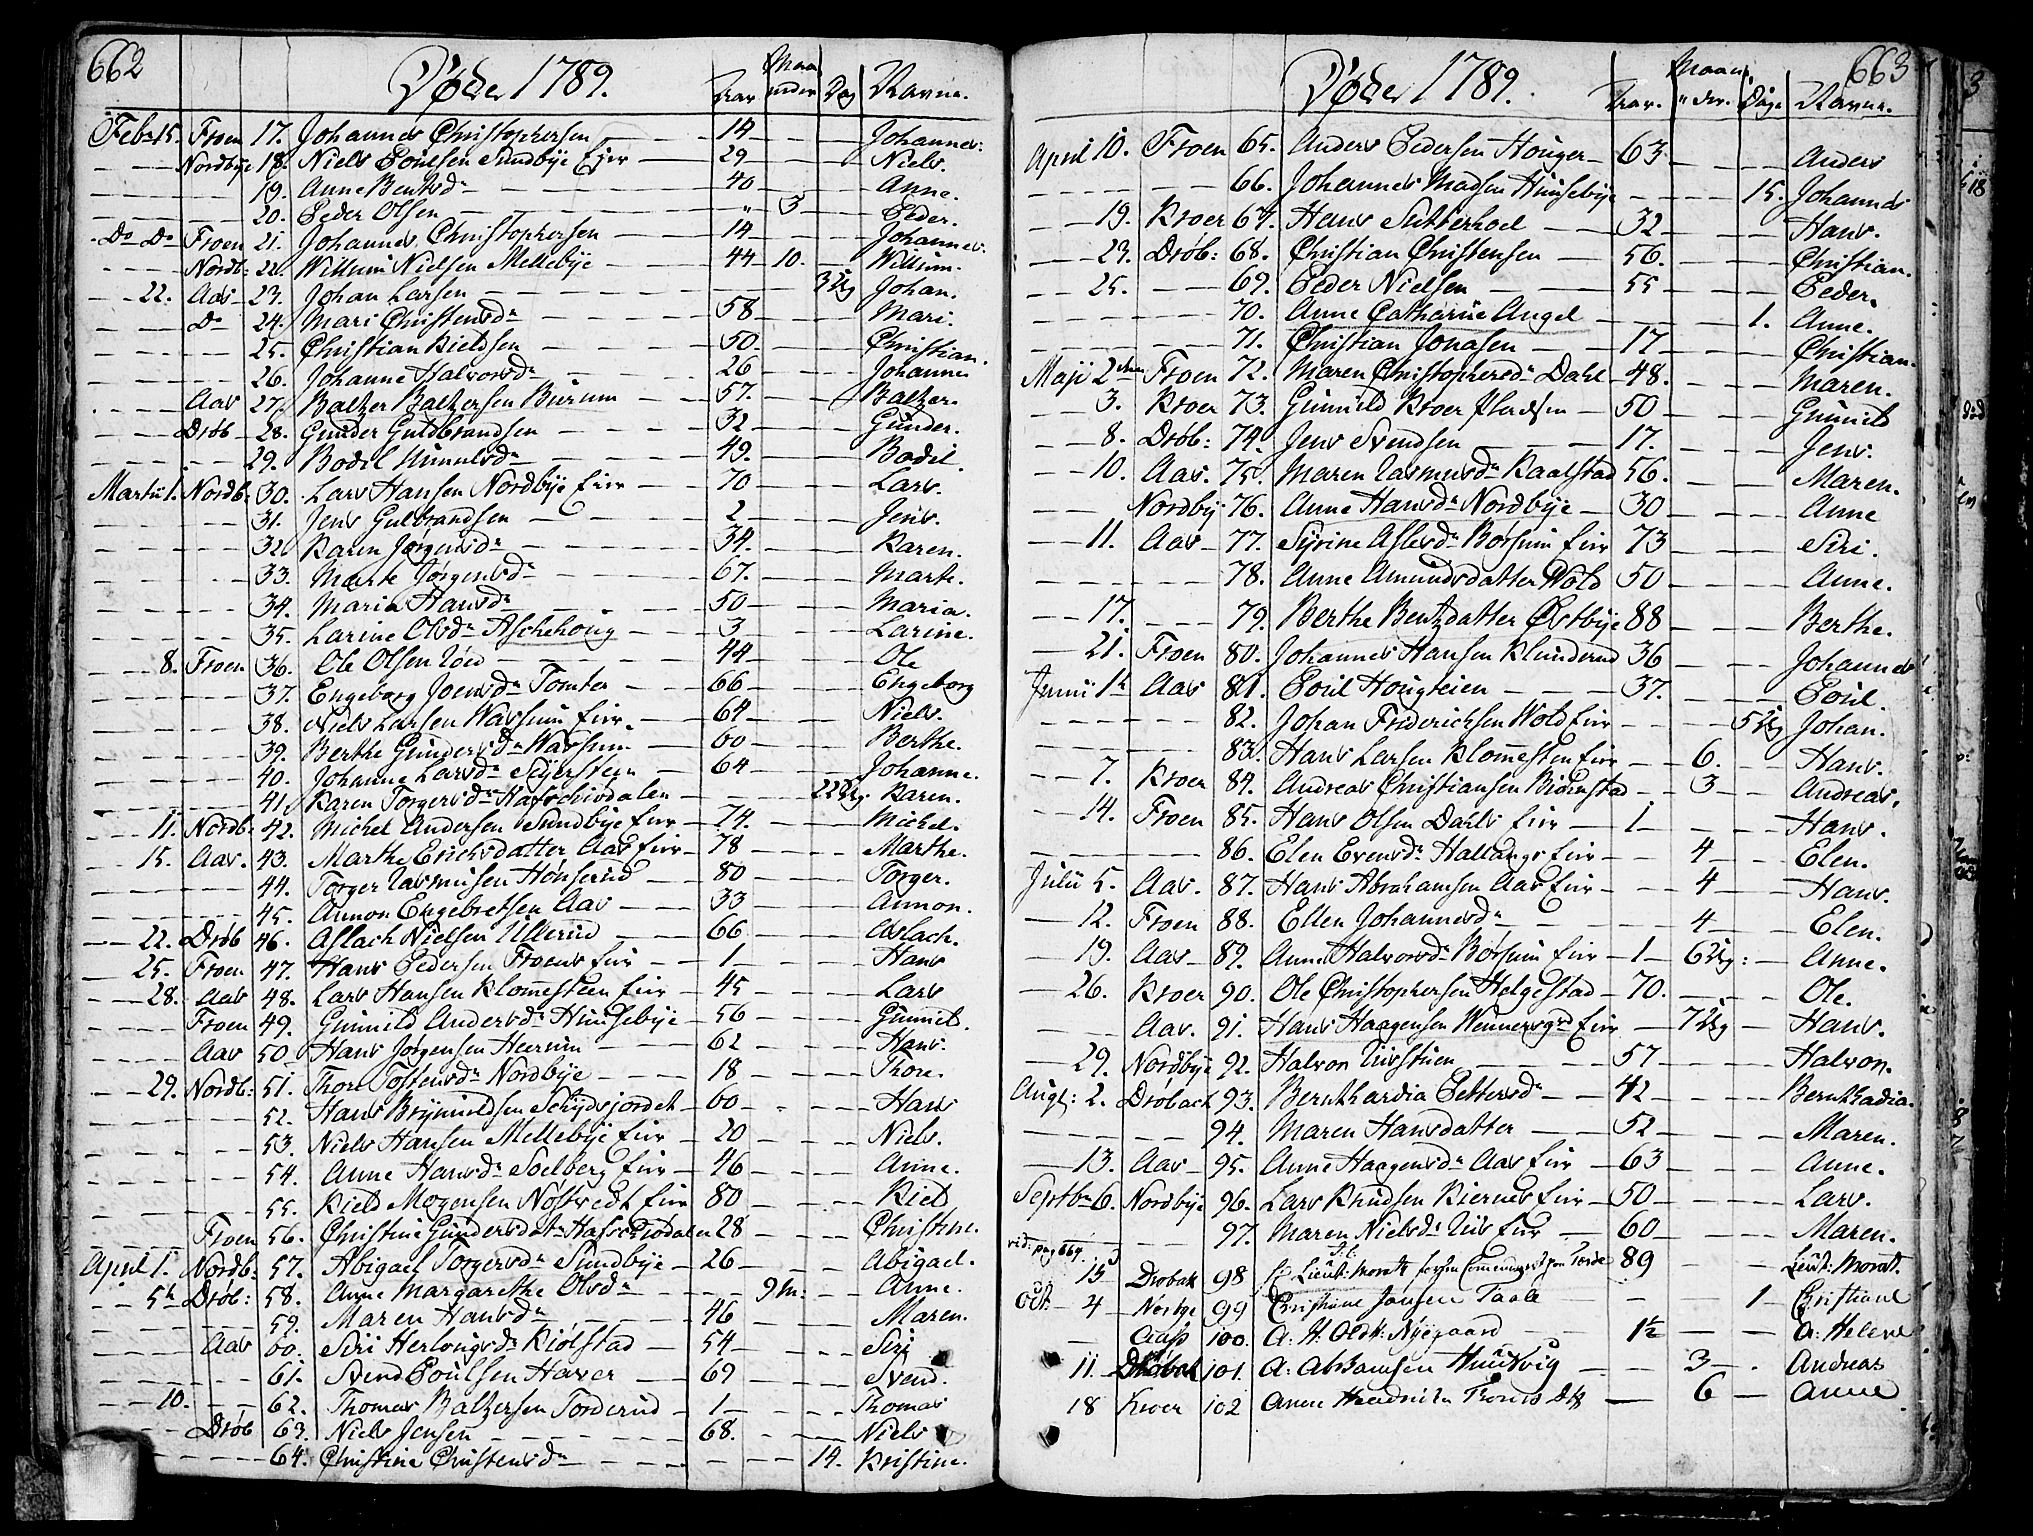 662
Døde 1789.
Aar Maaneder Dag Navne.
Febr 15. Froen 17. Johannes Christophersen — 14 — Johannes:
— Nordbye 18. Niels Poulsen Sundbye Eier — 29 — Niels.
— 19. Anne Bentsdr — 40 — Anne.
— 20. Peder Olsen — " 3 — Peder.
Do Do Froen 21. Johannes Christophersen — 14 — Johannes.
— Nordb: 22. Willum Nielsen Mellebye — 44 10. — Willum.
— 22. Aas 23. Johan Larsen — 3 Ug Johan.
— Do 24. Mari Christensdr — 58 — Mari.
— 25. Christian Kieldsen — 50 — Christian.
— 26. Johanne Halvorsdr — 26 — Johanne
— Aas 27. Baltzer Baltzersen Burum — 57. — Baltzer.
— Drøb 28. Gunder Guldbrandsen — 32 — Gunder.
— 29. Bodil — 49. — Bodil.
Martii 1. Nordb: 30. Lars Hansen Nordbye Eier — 70 — Lars.
— 31. Jens Gulbrandsen — 2 — Jens.
— 32. Karen Jørgensdr — 34. — Karen.
— 33. Marte Jørgensdr — 67. — Marte.
— 34. Maria Hansdr — 50 — Maria.
— 35. Larine Olsdr Aschehoug — 3 — Larine.
— 8. Froen 36. Ole Olsen — 44 — Ole
— 37. Engeborg Joensdr Tomter — 66 — Engeborg
— 38. Niels Larsen Wassum Eier. — 64 — Niels.
— 39. Berthe Gundersdr Wassum — 60 — Berthe.
— 40. Johanne Larsdr Seiersteen — 64 — Johanne.
— 41. Karen Torgersdr Hafschiodalen — 22 Ug. Karen.
— 11. Nordb: 42. Michel Andersen Sundbye Eier — 74. — Michel.
— 15. Aas. 43. Marthe Erichsdatter Aas Eier — 78 — Marthe.
— 44. Torger Rasmusen Hønserud — 80 — Torger.
— 45. Anmon Engebretsen Aas — 33 — Anmon.
— 22. Drøb 46. Aslach Nielsen Ullerud — 66 — Aslach.
— 25. Froen 47. Hans Pedersen Froens Eier — 1 — Hans
— 28. Aas 48. Lars Hansen Klommesteen Eier — 45 — Lars
— Froen 49. Gunnild Andersdr Hunsebye — 56 — Gunnil.
— Aas 50. Hans Jørgensen Heerum — 62 — Hans.
— 29. Nordb: 51. Thore Tostensdr Nordbye — 18 — Thore.
— 52. Hans Brynildsen Schydsjordet — 60 — Hans
— 53. Niels Hansen Mellebye Eier — 20 — Niels.
— 54. Anne Hansdr Soelberg Eier — 46 — Anne.
— 55. Kield Mogensen Nøstvedt Eier 80 — Kiel
— Froen 56. Christine Gundersdatr Hafschiodalen 28 — Christine.
April 1. Nordb: 57. Abigael Torgersdr Sundbye — 26 — Abigael.
— 5te Drøb: 58. Anne Margarethe Olsdr — 9 m: — Anne.
— 59. Maren Hansdr — 46 — Maren.
— Aas 60. Siri Herlougsdr Kiølstad — 54 — Siri
— 61. Svend Poulsen Haver — 69 — Svend.
— 10. 62. Thomas Baltzersen Torderud — 1 — Thomas
— Drøb 63. Niels Jensen — 68. — Niels
— 64. Christine Christensdr — 14. Kristine.
663
Døde 1789.
Aar. Maaneder. Dage Navne.
April 10. Froen 65. Anders Pedersen Houger — 63 — Anders
— 66. Johannes Madsen Hunsebye — 15. Johannes
— 19. Kroer 67. Hans Sutterhoel — 32 — Hans.
— 23. Drøb: 68. Christian Christensen — 56. — Christian.
— 25. — 69. Peder Nielsen — 55 — Peder.
— 70. Anne Catharine Angel — 1. Anne.
— 71. Christian Jonasen — 17 — Christian.
Maji 2den Froen 72. Maren Christophersdr Dahl — 48. — Maren.
— 3. Kroer 73. Gunnild Kroer — 50 — Gunnild
— 8. Drøb: 74. Jens Svendsen — 17. — Jens.
— 10. Aas. 75. Maren Rasmusdr Kaalstad 56. — Maren.
Nordby 76. Anne Hansdr Nordbye — 30 — Anne
— 11. Aas — 77. Syrine Aslesdr Børsum Eier 73 — Siri.
— 78. Anne Amundsdatter Wold 50 — Anne.
— 17. — 79. Berthe Bentzdatter Østbye 88 — Berthe.
— 21. Froen 80. Johannes Hansen Klunderud 36 — Johannes
Junii 1te Aas 81. Poul Hougteien — 37. — Poul.
— 82. Johan Friderichsen Wold Eier — 5 Ug Johan.
— 83. Hans Larsen Klommesten Eier — 6. — Hans.
— 7. Kroer 84. Andreas Christiansen Biørnstad — 3 — Andreas.
— 14. Froen 85. Hans Olsen Dahls Eier — 1 — Hans.
— 86. Elen Evensdr Hallangs Eier — 4 — Elen.
Julii 5. Aas. 87. Hans Abrahamsen Aas Eier — 4 — Hans.
— 12. Froen 88. Ellen Johannesdr — 4 — Elen.
— 19. Aas — 89. Anne Halvorsdr Børsum Eier — 1 — 6 Ug: — Anne.
— 26. Kroer 90. Ole Christophersen Helgestad — 70. — Ole.
— Aas. 91. Hans Haagensen Wennersgrd Eier — 7 Ug — Hans.
— 29. Nordbye 92. Halvor — 57 — Halvor.
Augt: 2. Drøbach 93. Bernthardia Pettersdr — 42 — Bernthadia.
— 94. Maren Hansdatter — 52 — Maren.
— 13. Aas — 95. Anne Haagensdr Aas Eier — 63 — Anne.
Septbr 6. Nordbye 96. Lars Knudsen Kiernes Eier — 50 — Lars.
— 97. Maren Nielsdr Riis Eier — 60 — Maren.
vid: pag 664
— 13 Drøbak 98 Lieut: Moratz 89 — Lieut: Moratt.
Octr: 4 Norbye 99 Christiane Jansen Taale — 1 — Christiane
— Aass 100. A: H. Oldt: Nyegaard — 1½ — A: Helene
11 Drøbak 101. A: Abramsen Huusvig — 3 — Andreas
18 Kroer 102 Anne — 6 — Anne